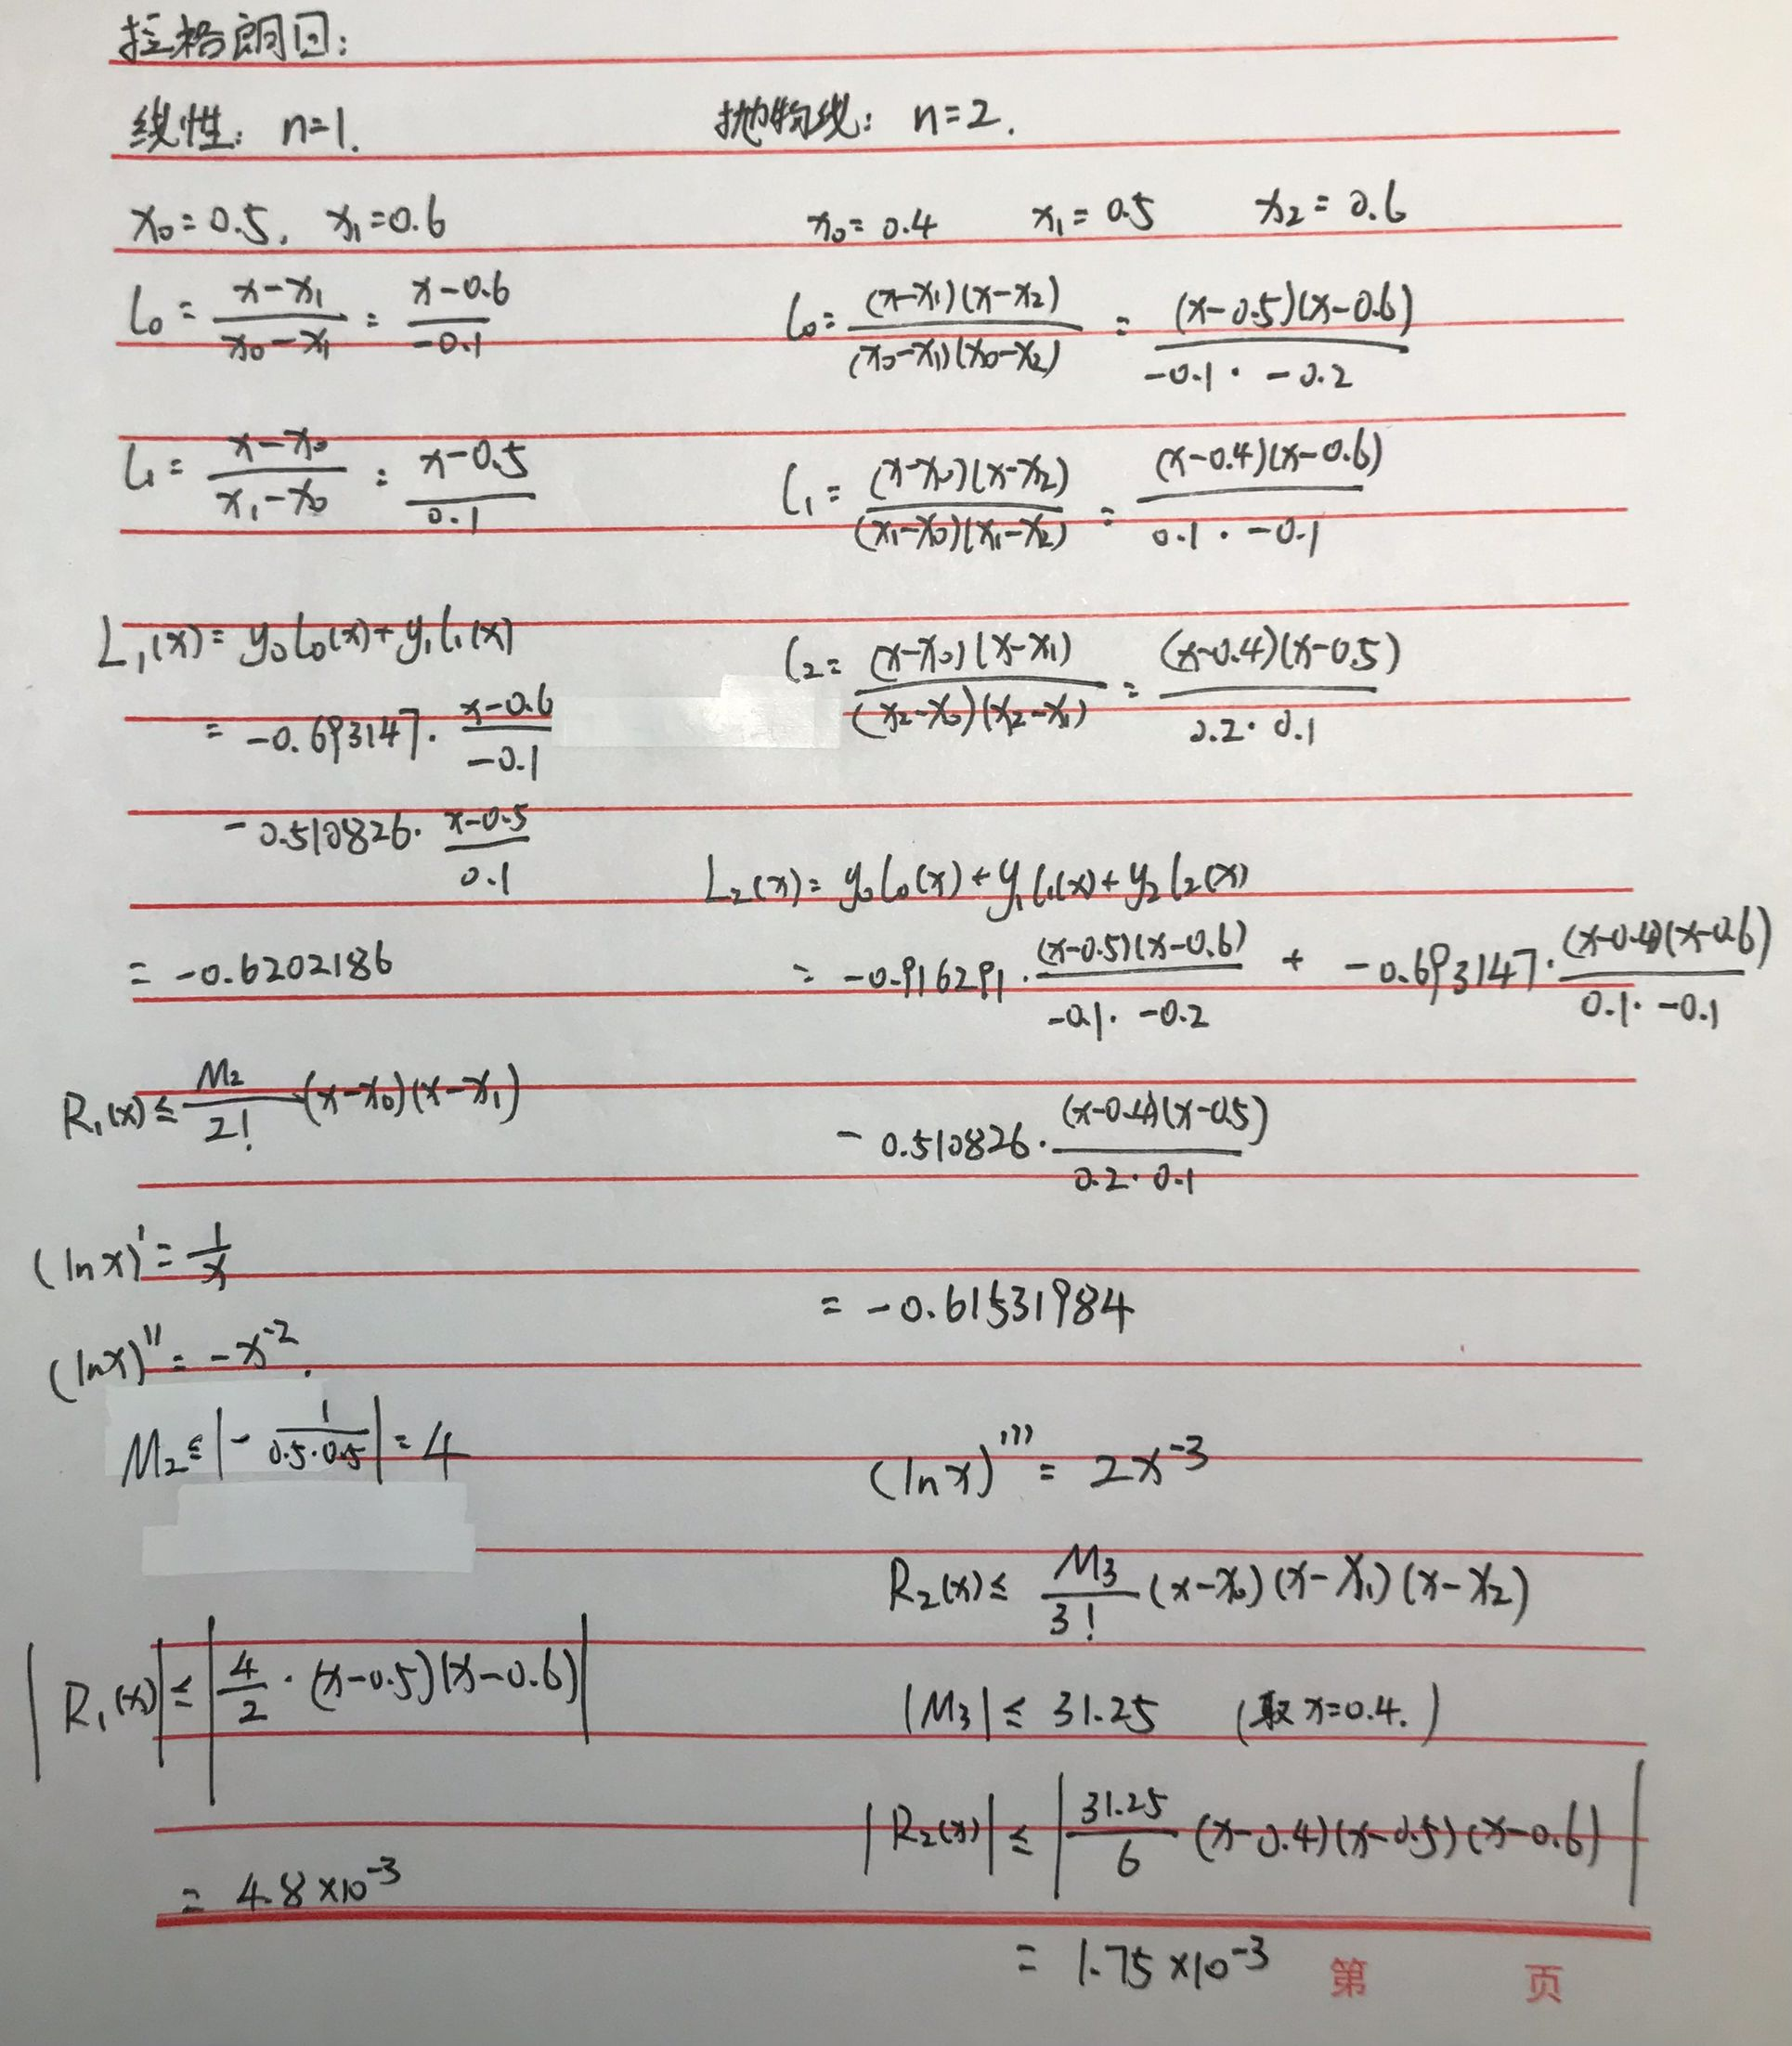 拉格朗日:
线性: n=1.
x₀=0.5, x₁=0.6
l₀ = (x-x₁)/(x₀-x₁) = (x-0.6)/(-0.1)
l₁ = (x-x₀)/(x₁-x₀) = (x-0.5)/(0.1)
L₁(x)= y₀l₀(x)+y₁l₁(x)
= -0.693147·(x-0.6)/(-0.1)
-0.510826·(x-0.5)/(0.1)
= -0.6202186
R₁(x)≤ M₂/2! (x-x₀)(x-x₁)
(lnx)'= 1/x
(lnx)''= -x⁻².
M₂≤|- 1/(0.5·0.5)|=4
|R₁(x)|≤|4/2·(x-0.5)(x-0.6)|
= 4.8×10⁻³
抛物线: n=2.
x₀=0.4 x₁=0.5 x₂=0.6
l₀= (x-x₁)(x-x₂)/(x₀-x₁)(x₀-x₂) = (x-0.5)(x-0.6)/(-0.1·-0.2)
l₁= (x-x₀)(x-x₂)/(x₁-x₀)(x₁-x₂) = (x-0.4)(x-0.6)/(0.1·-0.1)
l₂= (x-x₀)(x-x₁)/(x₂-x₀)(x₂-x₁) = (x-0.4)(x-0.5)/(0.2·0.1)
L₂(x)= y₀l₀(x)+y₁l₁(x)+y₂l₂(x)
= -0.916291·(x-0.5)(x-0.6)/(-0.1·-0.2) + -0.693147·(x-0.4)(x-0.6)/(0.1·-0.1)
- 0.510826·(x-0.4)(x-0.5)/(0.2·0.1)
= -0.61531984
(lnx)'''= 2x⁻³
R₂(x)≤ M₃/3! (x-x₀)(x-x₁)(x-x₂)
|M₃|≤ 31.25 (取x=0.4.)
|R₂(x)|≤|31.25/6 (x-0.4)(x-0.5)(x-0.6)|
= 1.75×10⁻³
第 页